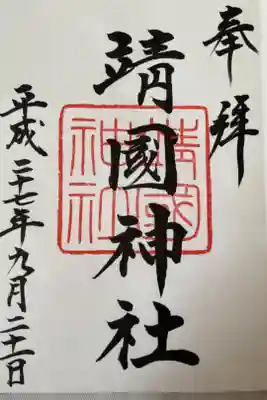 奉拝
靖國神社
平成二十七年九月二十一日
靖國
神社